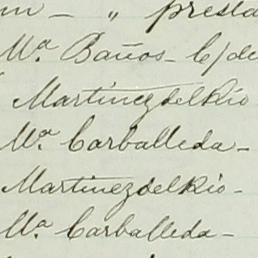 m — " presta
Mª. Baños. C/ de
Martinez del Rio
Mª. Carballeda —
Martinez del Rio. —
Mª. Carballeda —